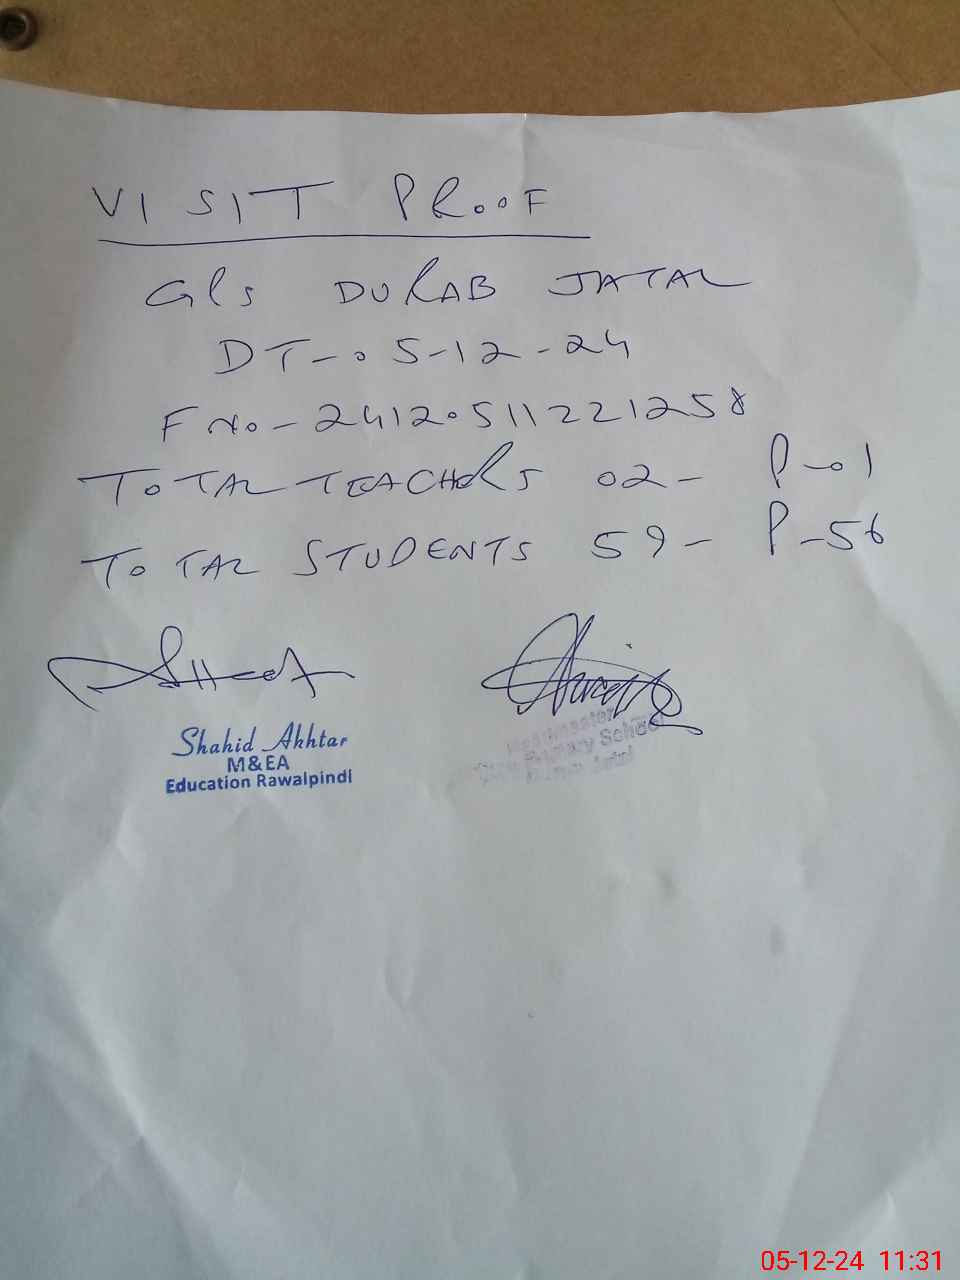 VISIT PROOF
GPS DURAB JATAL
DT-05-12-24
F No-24120511221258
TOTAL TEACHERS 02- P-01
TOTAL STUDENTS 59- P-56
Shahid Akhtar
M&EA
Education Rawalpindi
Headmaster
Primary School
05-12-24 11:31